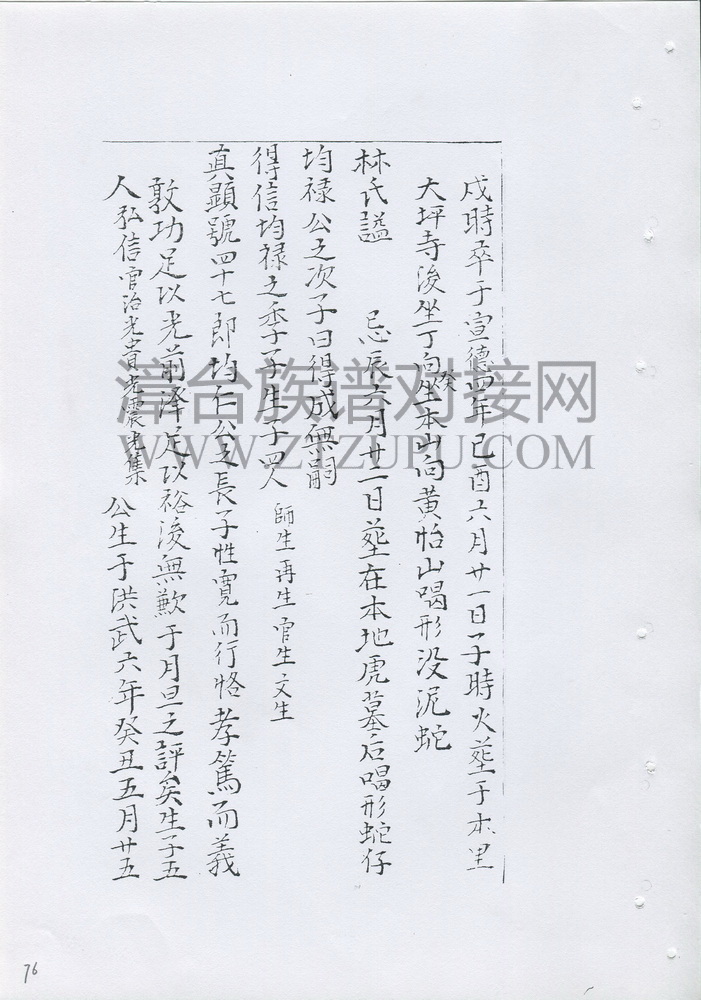 戌時卒于宣德四年己酉六月廿一日子時火塟于本里
大坪寺後坐丁向癸坐本山向黃怡山喝形没泥蛇
林氏謚 忌辰六月廿一日塟在本地虎墓后喝形蛇仔
均禄公之次子曰得成無嗣
得信均禄之季子生子四人 師生再生官生文生
真顯號四十七郎均仁公之長子性寬而行恪孝篤而義
敦功足以光前澤足以裕後無歉于月旦之評矣生子五
人弘信官治光貴光震光集 公生于洪武六年癸丑五月廿五
漳台族谱对接网
WWW.ZTZUPU.COM
76